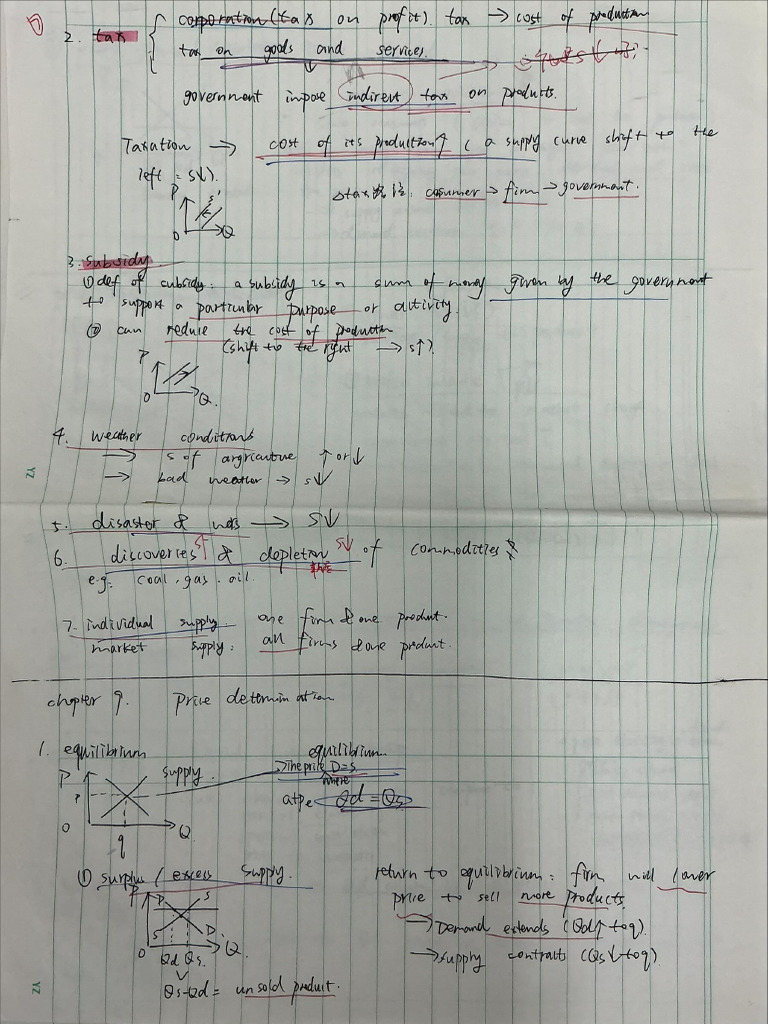 corporation (tax on profit). tax → cost of production
2. tax
tax on goods and services.
government impose indirect tax on products.
Taxation → cost of its production↑ ( a supply curve shift to the
left = S↓).
P
S'
0 Q
△tax 流 : cosumer → firm → government.
3. subsidy
① def of subsidy: a subsidy is a sum of money given by the government
to support a particular purpose or activity.
② can reduce the cost of production
(shift to the right → S↑).
P
0 Q.
4. weather conditions
→ S of argricautue ↑ or ↓
→ bad weather → S↓
5. disaster & → S↓
6. discoveries S↑ & depletion S↓ of commodities
e.g: coal . gas . oil.
7. individual supply: one firm & one product.
market supply: all firms & one product.
chapter 9. Price determination
1. equilibrium
equilibrium
P supply.
→The price D=S.
where
P
at Pe Qd = Qs
0 q Q
① surplus / excess supply.
return to equilibrium: firm will lower
price to sell more products.
P D S
→Demand extends (Qd↑ to q).
S D.
→supply contracts (Qs↓ to q)
0 Qd Qs. Q
Qs-Qd = unsold product.